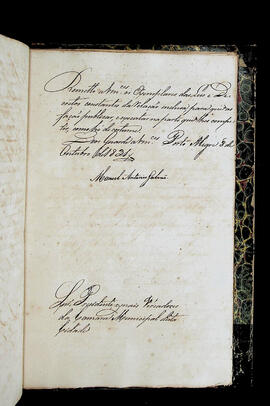 Remetto a Vm.ces os Exemplares das Leis e De
cretos constantes da relação inclusa para que as
faça publicar, e executar na parte que lhes compe
tir, como he de costume.
Deos Guarde a Vm.ces Porto Alegre 8 de
Outubro de 1836
Manuel Antonio
Snr.s Presidente e mais Vereadores
da Camara Municipal desta
Cidade